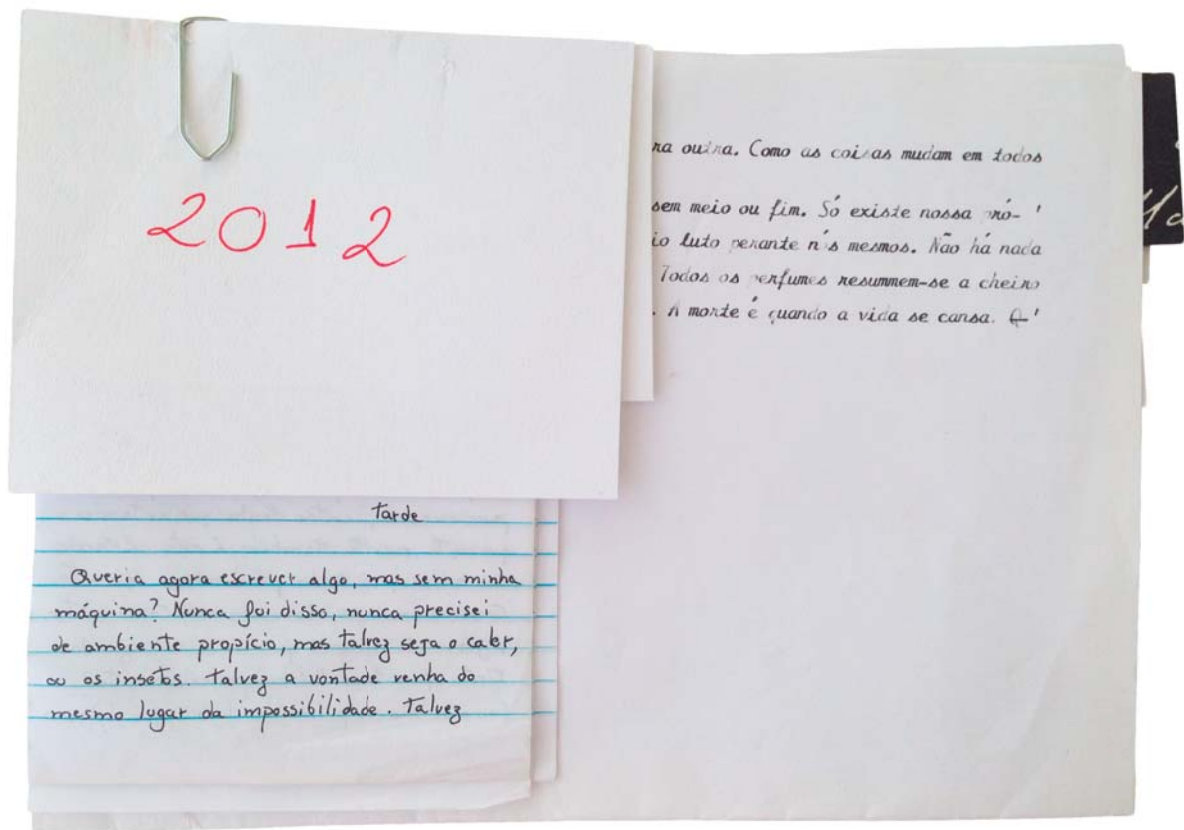 2012
ra outra. Como as coisas mudam em todos
sem meio ou fim. Só existe nossa pró-
io luto perante nós mesmos. Não há nada
Todos os perfumes resummem-se a cheiro
. A morte é quando a vida se cansa.
tarde
Queria agora escrever algo, mas sem minha
máquina? Nunca fui disso, nunca precisei
de ambiente propício, mas talvez seja o calor,
ou os insetos. talvez a vontade venha do
mesmo lugar da impossibilidade. Talvez